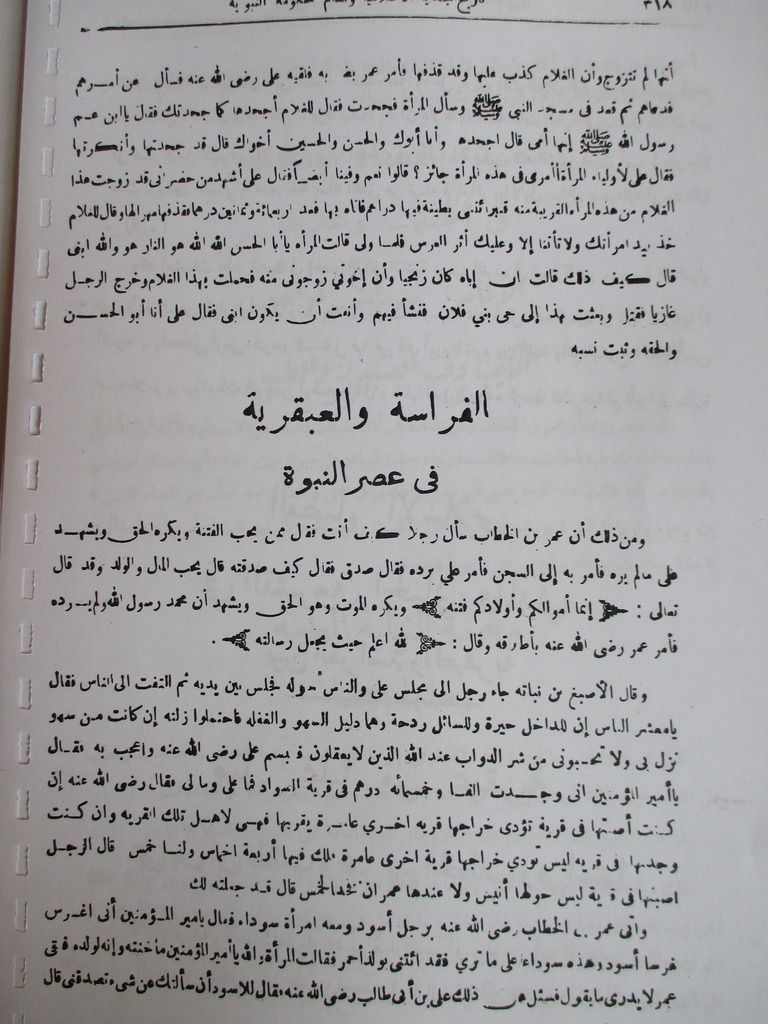 ٣١٨
أنها لم تتزوج وأن الغلام كذب عليها وقد قذفها فأمر عمر به فلقيه على رضى الله عنه فسأل عن أمرهم
فدعاهم ثم قعد فى مسجد النبى ﷺ وسأل المرأة فجحدت فقال للغلام أجحدها كما جحدتك فقال يا ابن عم
رسول الله ﷺ إنها أمى قال اجحدها وأنا أبوك والحسن والحسين أخواك قال قد جحدتها وأنكرتها
فقال على لأولياء المرأة أأمرى فى هذه المرأة جائز ؟ قالوا نعم وفينا أيضـاً فقال على أشهد من حضر أنى قد زوجت هذا
الغلام من هذه المرأه الغريبة منه قنبر ائتنى بطينة فيها دراهم فأتاه بها فعد اربعمائة وثمانين درهما فقذفها مهرا لها وقال للغلام
خذ بيد امرأتك ولا تأتنا إلا وعليك أثر العرس فلما ولى قالت المرأه يا أبا الحسن الله الله هو النار هو والله ابنى
قال كيف ذلك قالت ان إباه كان زنجيا وأن إخوتي زوجونى منه فحملت بهذا الغلام وخرج الرجل
غازيا فقتل وبعثت بهذا إلى حى بني فلان فنشأ فيهم وأنفت أن يكون ابنى فقال على أنا أبو الحسن
والحقه وثبت نسبه
الفراسة والعبقرية
فى عصر النبوة
ومن ذلك أن عمر بن الخطاب سأل رجلا كيف أنت فقال ممن يحب الفتنة ويكره الحق ويشهد
على مالم يره فأمر به إلى السجن فأمر علي برده فقال صدق فقال كيف صدقته قال يحب المال والولد وقد قال
تعالى : إنما أموالكم وأولادكم فتنه ويكره الموت وهو الحق ويشهد أن محمد رسول الله ولم يره
فأمر عمر رضى الله عنه بأطلاقه وقال : لله اعلم حيث يجعل رسالته .
وقال الأصبغ بن نباته جاء رجل الى مجلس على والناس حوله فجلس بين يديه ثم التفت الى الناس فقال
يا معشر الناس إن للداخل حيرة وللسائل ردحة وهما دليل السهو والغفله فاحتملوا زلته إن كانت من سهو
نزل بى ولا تحسبونى من شر الدواب عند الله الذين لا يعقلون فتبسم على رضى الله عنه واعجب به فقال
يا أمير المؤمنين انى وجدت الفا وخمسمائه درهم فى قرية السواد فما على وما لى فقال رضى الله عنه إن
كنت أصبتها فى قرية تؤدى خراجها قريه اخري عامرة يقربها فهى لاهل تلك القريه وان كنت
وجدتها فى قريه ليس تودي خراجها قرية اخرى عامرة فلك فيها أربعة اخماس ولنا خمس قال الرجل
اصبتها فى قرية ليس حولها أنيس ولا عندها عمران فخذ الخمس قال قد جعلته لك
واتى عمر بن الخطاب رضى الله عنه برجل أسود ومعه امرأة سوداء فقال يامير المؤمنين أنى اغرس
غرسا أسود وهذه سوداء على ما تري فقد ائتنى بولد أحمر فقالت المرأة والله يا أمير المؤمنين ما خنته وإنه لولده فبقى
عمر لا يدرى ما يقول فسئل عن ذلك على بن أبى طالب رضى الله عنه فقال للاسود أن سألتك عن شىء تصدقنى قال